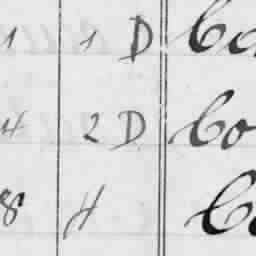 1 1 D Co
4 2 D Co
8 H Co